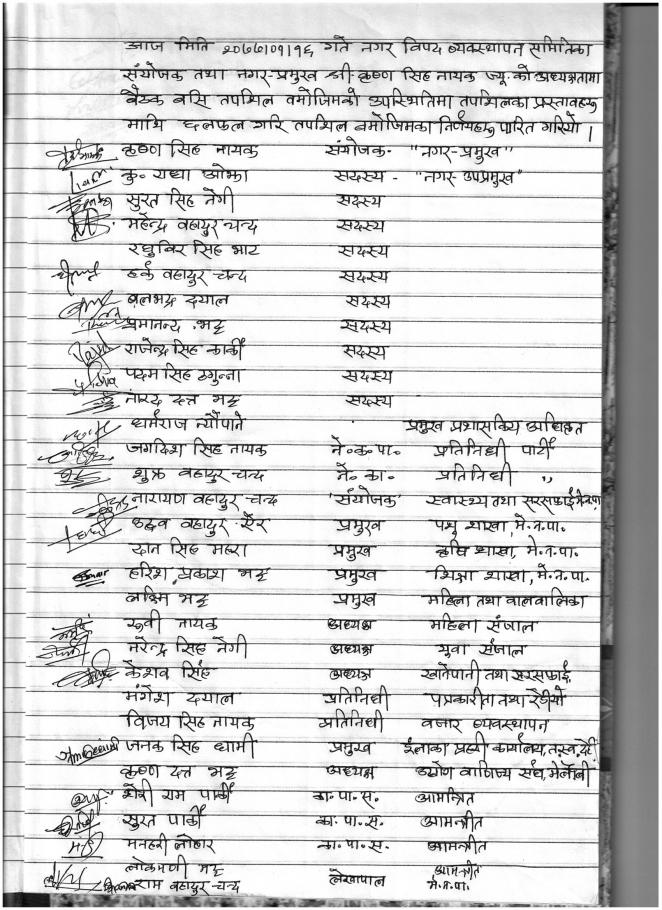 आज मिति २०७७।०१।१६ गते नगर विपद व्यवस्थापन समितिका
संयोजक तथा नगर-प्रमुख श्री कृष्ण सिंह नायक ज्यू को अध्यक्षतामा
बैठक बसि तपशिल बमोजिमको उपस्थितिमा तपशिलका प्रस्तावहरु
माथि छलफल गरि तपशिल बमोजिमका निर्णयहरु पारित गरियो।
कृष्ण सिंह नायक संयोजक- "नगर-प्रमुख"
कु. राधा ओझा सदस्य - "नगर-उपप्रमुख"
सुरत सिंह नेगी सदस्य
महेन्द्र बहादुर चन्द सदस्य
रघुविर सिंह भाट सदस्य
हर्क बहादुर चन्द सदस्य
बलभद्र दयाल सदस्य
प्रमानन्द भट्ट सदस्य
राजेन्द्र सिंह कार्की सदस्य
पदम सिंह ठगुन्ना सदस्य
नारद दत्त भट्ट सदस्य
धर्मराज न्यौपाने प्रमुख प्रशासकिय अधिकृत
जगदिश सिंह नायक ने.क.पा. प्रतिनिधी पार्टी
शुक्र बहादुर चन्द ने. का. प्रतिनिधी ,,
नारायण बहादुर चन्द 'संयोजक' स्वास्थ्य तथा सरसफाई मे.न.पा.
बहादुर सैर प्रमुख पशु शाखा, मे.न.पा.
दान सिंह महरा प्रमुख कृषि शाखा, मे.न.पा.
हरिश प्रकाश भट्ट प्रमुख शिक्षा शाखा, मे.न.पा.
लक्ष्मि भट्ट प्रमुख महिला तथा बालबालिका
रुवी नायक अध्यक्ष महिला संजाल
नरेन्द्र सिंह नेगी अध्यक्ष युवा संजाल
केशव सिंह अध्यक्ष खानेपानी तथा सरसफाई
मंगेश दयाल प्रतिनिधी पत्रकारीता तथा रेडीयो
विजय सिंह नायक प्रतिनिधी बजार व्यवस्थापन
जनक सिंह धामी प्रमुख ईलाका प्रहरी कार्यालय,
कृष्ण दत्त भट्ट अध्यक्ष उद्योग वाणिज्य संघ, मेलौली
शेरी राम पार्की का.पा.स. आमन्त्रित
सुरत पार्की का.पा.स. आमन्त्रीत
मनहरी लोहार का.पा.स. आमन्त्रीत
लोकमणी भट्ट आमन्त्रीत
राम बहादुर चन्द लेखापाल मे.न.पा.